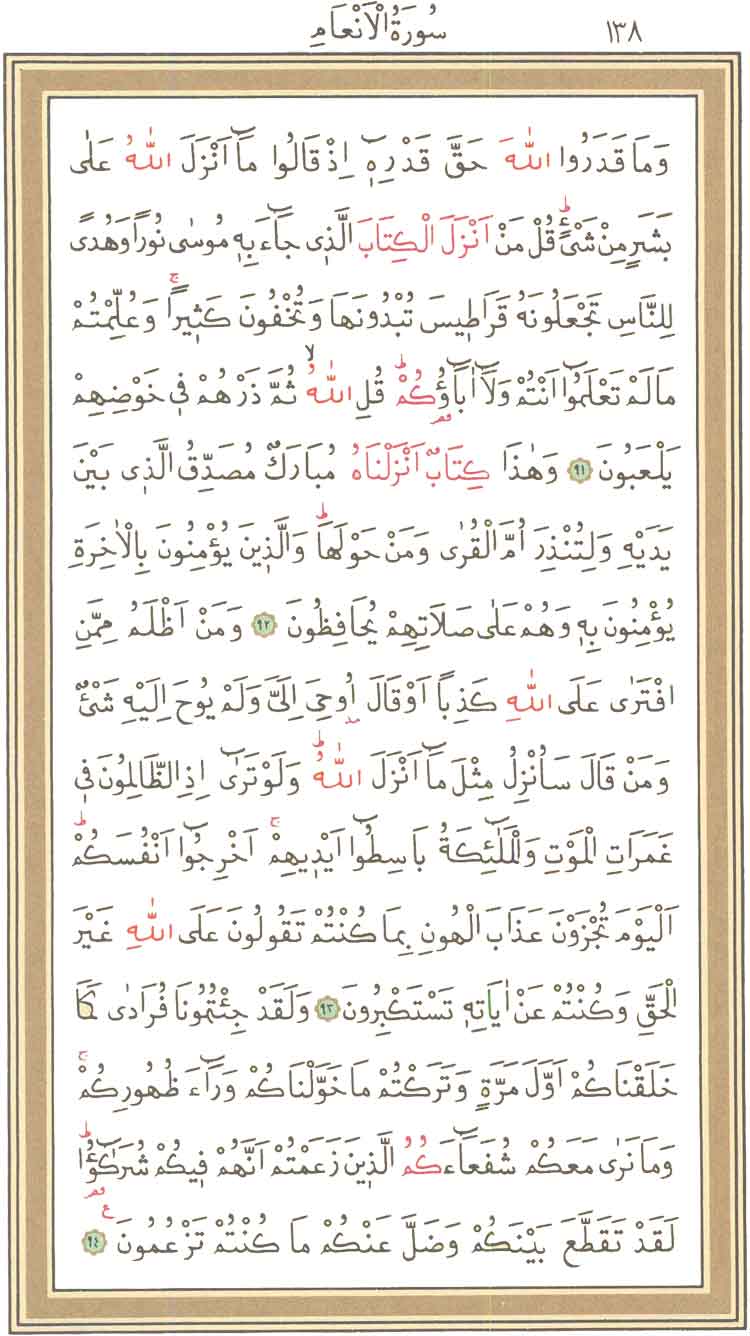 سُورَةُ الْاَنْعَامِ ١٣٨
وَمَا قَدَرُوا اللّٰهَ حَقَّ قَدْرِه۪ٓ اِذْ قَالُوا مَٓا اَنْزَلَ اللّٰهُ عَلٰى
بَشَرٍ مِنْ شَيْءٍۜ قُلْ مَنْ اَنْزَلَ الْكِتَابَ الَّذ۪ي جَٓاءَ بِه۪ مُوسٰى نُوراً وَهُدًى
لِلنَّاسِ تَجْعَلُونَهُ قَرَاط۪يسَ تُبْدُونَهَا وَتُخْفُونَ كَث۪يراًۚ وَعُلِّمْتُمْ
مَا لَمْ تَعْلَمُٓوا اَنْتُمْ وَلَٓا اٰبَٓاؤُ۬كُمْۜ قُلِ اللّٰهُۙ ثُمَّ ذَرْهُمْ ف۪ي خَوْضِهِمْ
يَلْعَبُونَ ﴿٩١﴾ وَهٰذَا كِتَابٌ اَنْزَلْنَاهُ مُبَارَكٌ مُصَدِّقُ الَّذ۪ي بَيْنَ
يَدَيْهِ وَلِتُنْذِرَ اُمَّ الْقُرٰى وَمَنْ حَوْلَهَاۜ وَالَّذ۪ينَ يُؤْمِنُونَ بِالْاٰخِرَةِ
يُؤْمِنُونَ بِه۪ وَهُمْ عَلٰى صَلَاتِهِمْ يُحَافِظُونَ ﴿٩٢﴾ وَمَنْ اَظْلَمُ مِمَّنِ
افْتَرٰى عَلَى اللّٰهِ كَذِباً اَوْ قَالَ اُو۫حِيَ اِلَيَّ وَلَمْ يُوحَ اِلَيْهِ شَيْءٌ
وَمَنْ قَالَ سَاُنْزِلُ مِثْلَ مَٓا اَنْزَلَ اللّٰهُۜ وَلَوْ تَرٰٓى اِذِ الظَّالِمُونَ ف۪ي
غَمَرَاتِ الْمَوْتِ وَالْمَلٰٓئِكَةُ بَاسِطُٓوا اَيْد۪يهِمْۚ اَخْرِجُٓوا اَنْفُسَكُمْۜ
اَلْيَوْمَ تُجْزَوْنَ عَذَابَ الْهُونِ بِمَا كُنْتُمْ تَقُولُونَ عَلَى اللّٰهِ غَيْرَ
الْحَقِّ وَكُنْتُمْ عَنْ اٰيَاتِه۪ تَسْتَكْبِرُونَ ﴿٩٣﴾ وَلَقَدْ جِئْتُمُونَا فُرَادٰى كَمَا
خَلَقْنَاكُمْ اَوَّلَ مَرَّةٍ وَتَرَكْتُمْ مَا خَوَّلْنَاكُمْ وَرَٓاءَ ظُهُورِكُمْۚ
وَمَا نَرٰى مَعَكُمْ شُفَعَٓاءَكُمُ الَّذ۪ينَ زَعَمْتُمْ اَنَّهُمْ ف۪يكُمْ شُرَكٰٓؤُ۬اۜ
لَقَدْ تَقَطَّعَ بَيْنَكُمْ وَضَلَّ عَنْكُمْ مَا كُنْتُمْ تَزْعُمُونَ۟ ﴿٩٤﴾